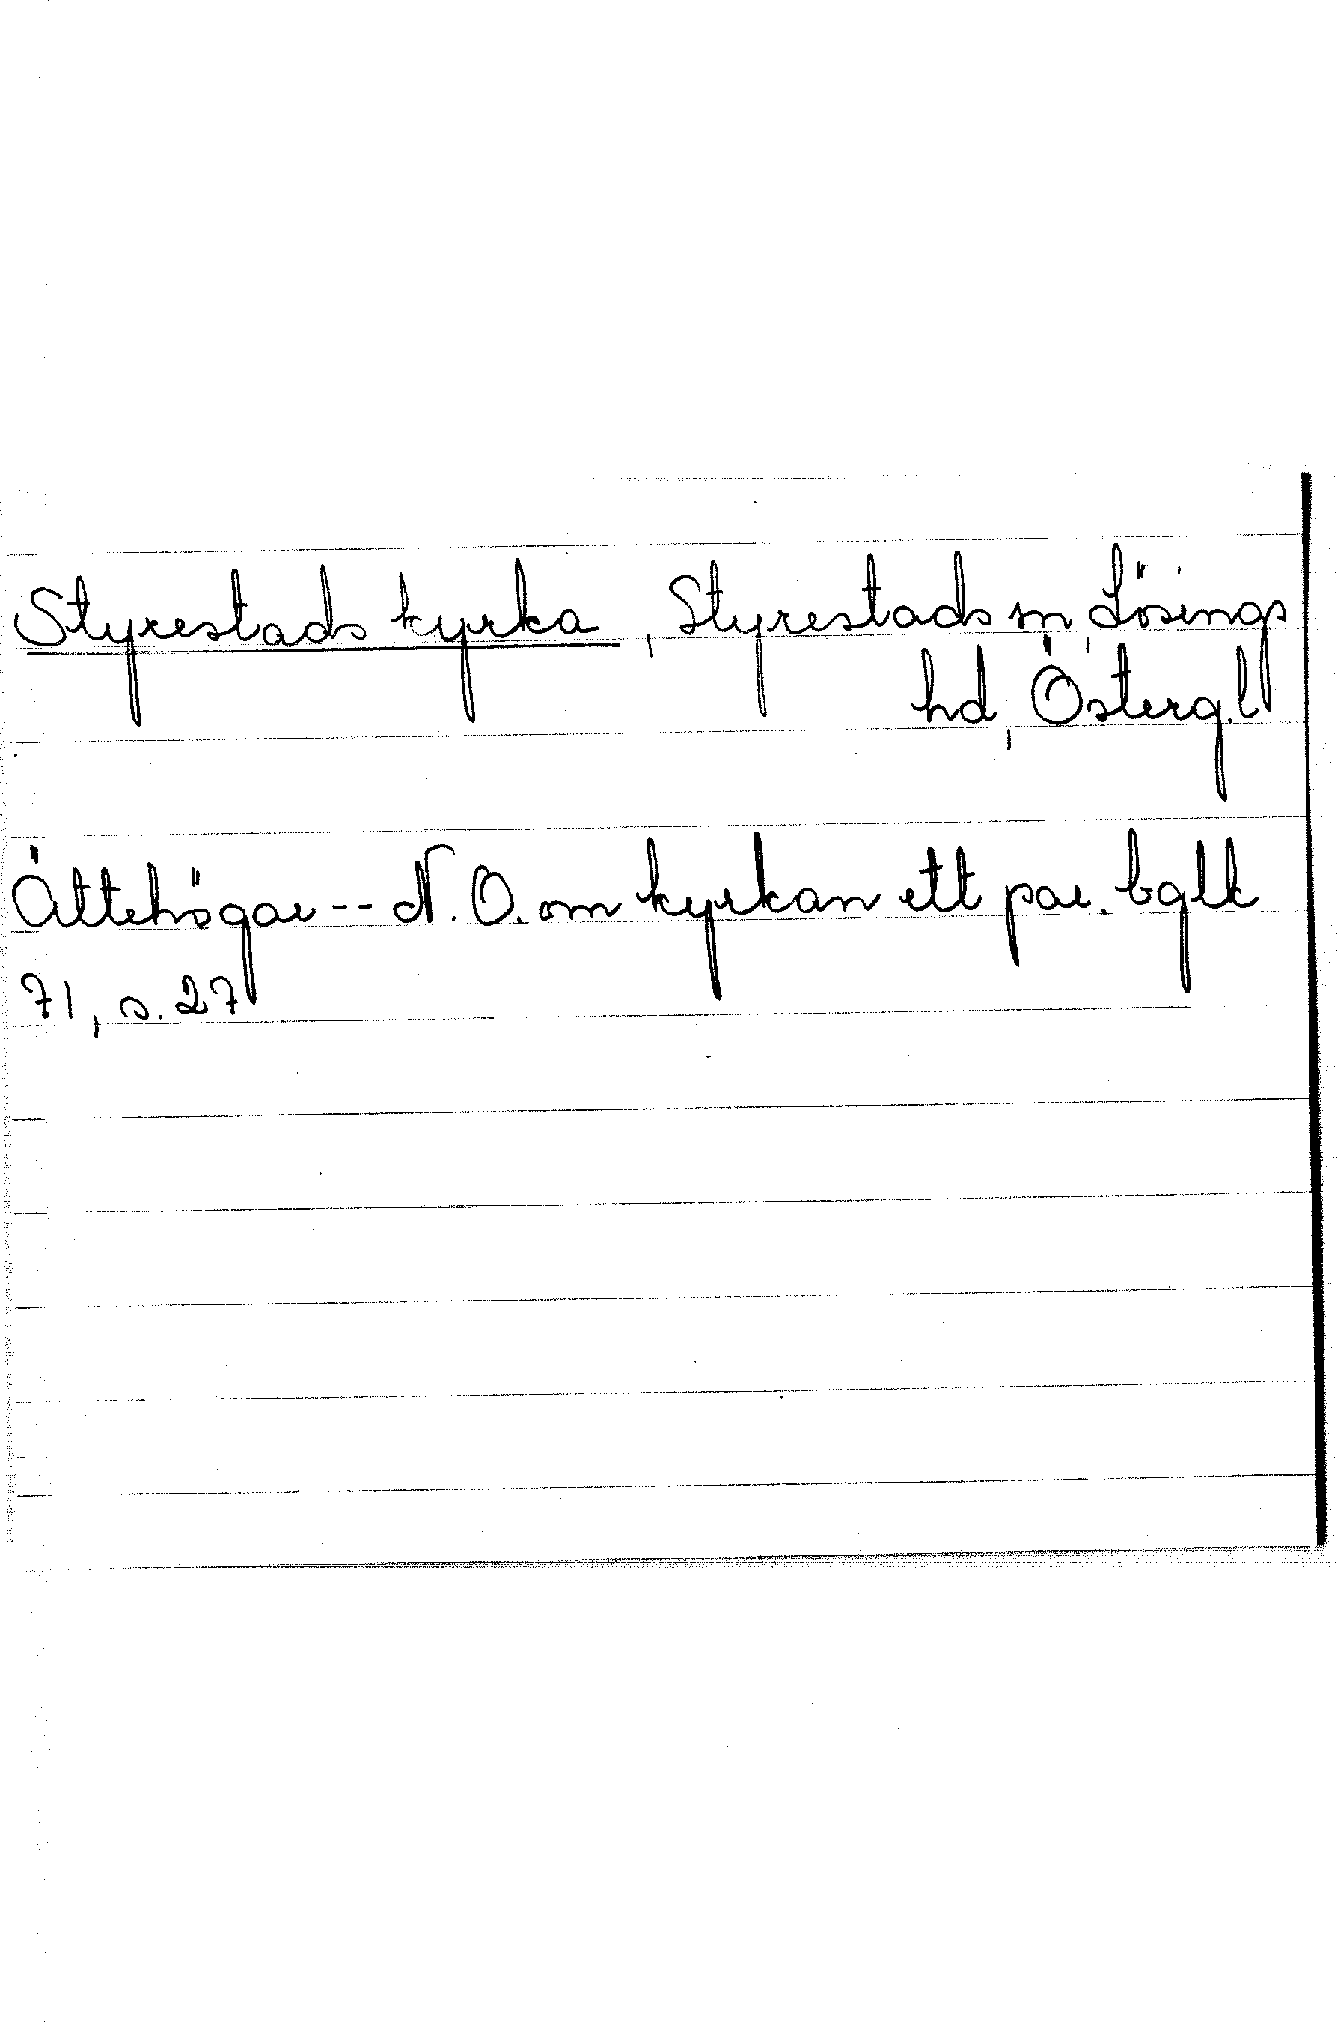 Styrestads kyrka, Styrestads sn, Lösings
hd, Österg.l
Ättehögar -- N.O. om kyrkan ett par. bglk
71, s. 27